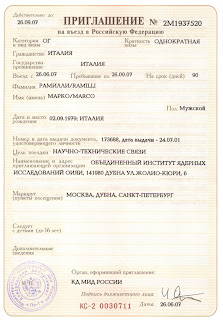 26.09.07
ПРИГЛАШЕНИЕ № 2М1937520
на въезд в Российскую Федерацию
Категория и вид визы ОГ Кратность визы ОДНОКРАТНАЯ
Гражданство ИТАЛИЯ
Государство проживания ИТАЛИЯ
Въезд с 26.06.07 Пребывание до 26.09.07 На срок (дней) 90
Фамилия РАМИЛЛИ/RAMILLI
Имя (имена) МАРКО/MARCO
Пол Мужской
Дата и место рождения 02.09.1979; ИТАЛИЯ
Номер и дата выдачи документа, удостоверяющего личность 173668, дата выдачи - 24.07.01
Цель поездки НАУЧНО-ТЕХНИЧЕСКИЕ СВЯЗИ
Наименование и адрес приглашающей организации ОБЪЕДИНЕННЫЙ ИНСТИТУТ ЯДЕРНЫХ
ИССЛЕДОВАНИЙ ОИЯИ, 141980 ДУБНА УЛ.ЖОЛИО-КЮРИ, 6
Маршрут (пункты посещения) МОСКВА, ДУБНА, САНКТ-ПЕТЕРБУРГ
Следуют с детьми (до 16 лет)
Дополнительные сведения
Орган, оформивший приглашение
КД МИД РОССИИ
Подпись должностного лица
КС-2 0036711